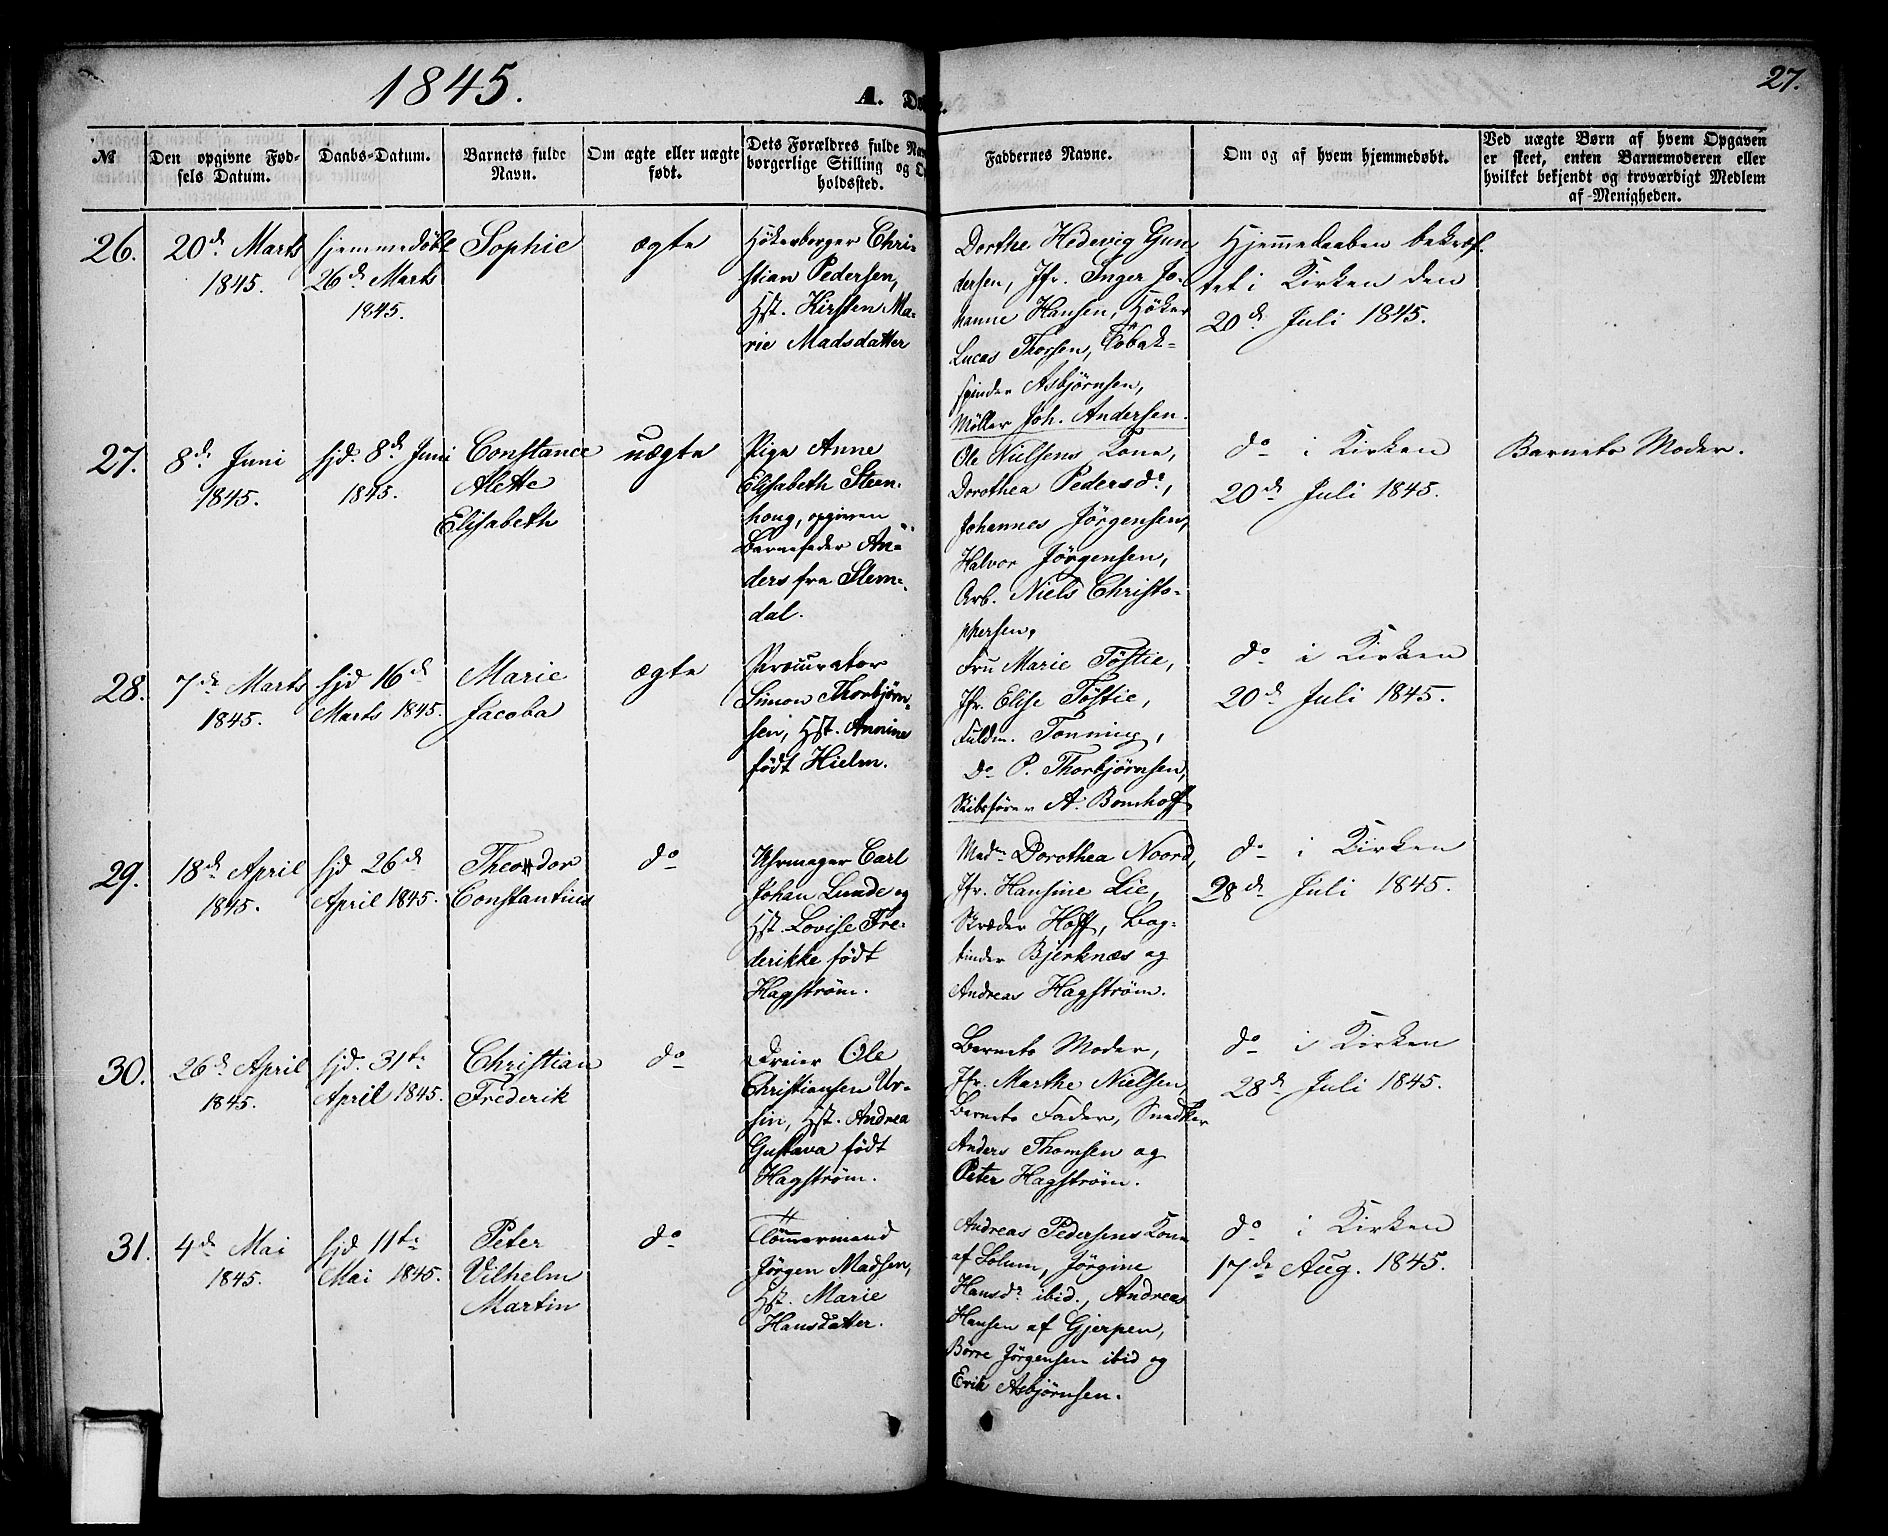 1845.
A. Dø
27.
№
Den opgivne Fød-
sels Datum.
Daabs-Datum.
Barnets fulde
Navn.
Om ægte eller uægte
født.
Dets Forældres fulde Na
borgerlige Stilling og O
holdssted.
Faddernes Navne.
Om og af hvem hjemmedøbt.
Ved uægte Børn af hvem Opgaven
er skeet, enten Barnemoderen eller
hvilket bekjendt og troværdigt Medlem
af Menigheden.
26.
20de Marts
1845.
Hjemmedøbt
26de Marts
1845.
Sophie
ægte
Høkerborger Chri-
stian Pedersen,
Hst. Kirsten Ma-
rie Madsdatter
Dorthe Hedevig Gun-
dersen, Jfr. Inger Jo-
hanne Hansen, Høker
Lucas Thorsen, Tobak-
spinder Asbjørnsen,
Møller Joh. Andersen.
Hjemmedaaben bekræf-
tet i Kirken den
20de Juli 1845.
27.
8de Juni
1845.
Hjd. 8de Juni
1845.
Constance
Alette
Elisabeth
uægte
Pige Anne
Elisabeth Steen-
houg, opgiven
Barnefader An-
ders fra Slem-
dal.
Ole Nielsens Kone,
Dorothea Pedersdr,
Johannes Jörgensen,
Halvor Jörgensen,
Arb. Niels Christo-
phersen.
do i Kirken
20de Juli 1845.
Barnets Moder.
28.
7de Marts
1845.
Hjd 16de
Marts 1845.
Marie
Jacoba
ægte
Procurator
Simon Thorbjörn-
sen, Hst. Annine
født Hielm.
Fru Marie Töstie,
Jfr. Elise Töstie,
Fuldm. Tonning,
Do P. Thorbjørnsen,
Skibsfører A. Bomhoff
do i Kirken
20de Juli 1845.
29.
18de April
1845.
Hjd 26de
April 1845.
Theodor
Constantius
do
Uhrmager Carl
Johan Lunde og
Hst. Lovise Fre-
derikke født
Hagström.
Madm Dorothea Noord,
Jfr. Hansine Lie,
Skræder Hoff, Bog-
binder Bjerknæs og
Andreas Hagström.
do i Kirken
28de Juli 1845.
30.
26de April
1845.
Hjd. 31te
April 1845.
Christian
Frederik
do
Dreier Ole
Christiansen Ur-
sin, Hst. Andrea
Gustava født
Hagström.
Barnets Moder,
Jfr. Marthe Nielsen,
Barnets Fader, Snedker
Anders Thomsen og
Peter Hagström.
do i Kirken
28de Juli 1845.
31.
4de Mai
1845.
Hjd 11te
Mai 1845.
Peter
Vilhelm
Martin
do
Tömmermand
Jörgen Madsen,
Hst. Marie
Hansdatter.
Andreas Pedersens Kone
af Solum, Jörgine
Hansdr ibid., Andreas
Hansen af Gjerpen,
Börre Jörgensen ibid og
Erik Asbjörnsen.
do i Kirken
17de Aug. 1845.